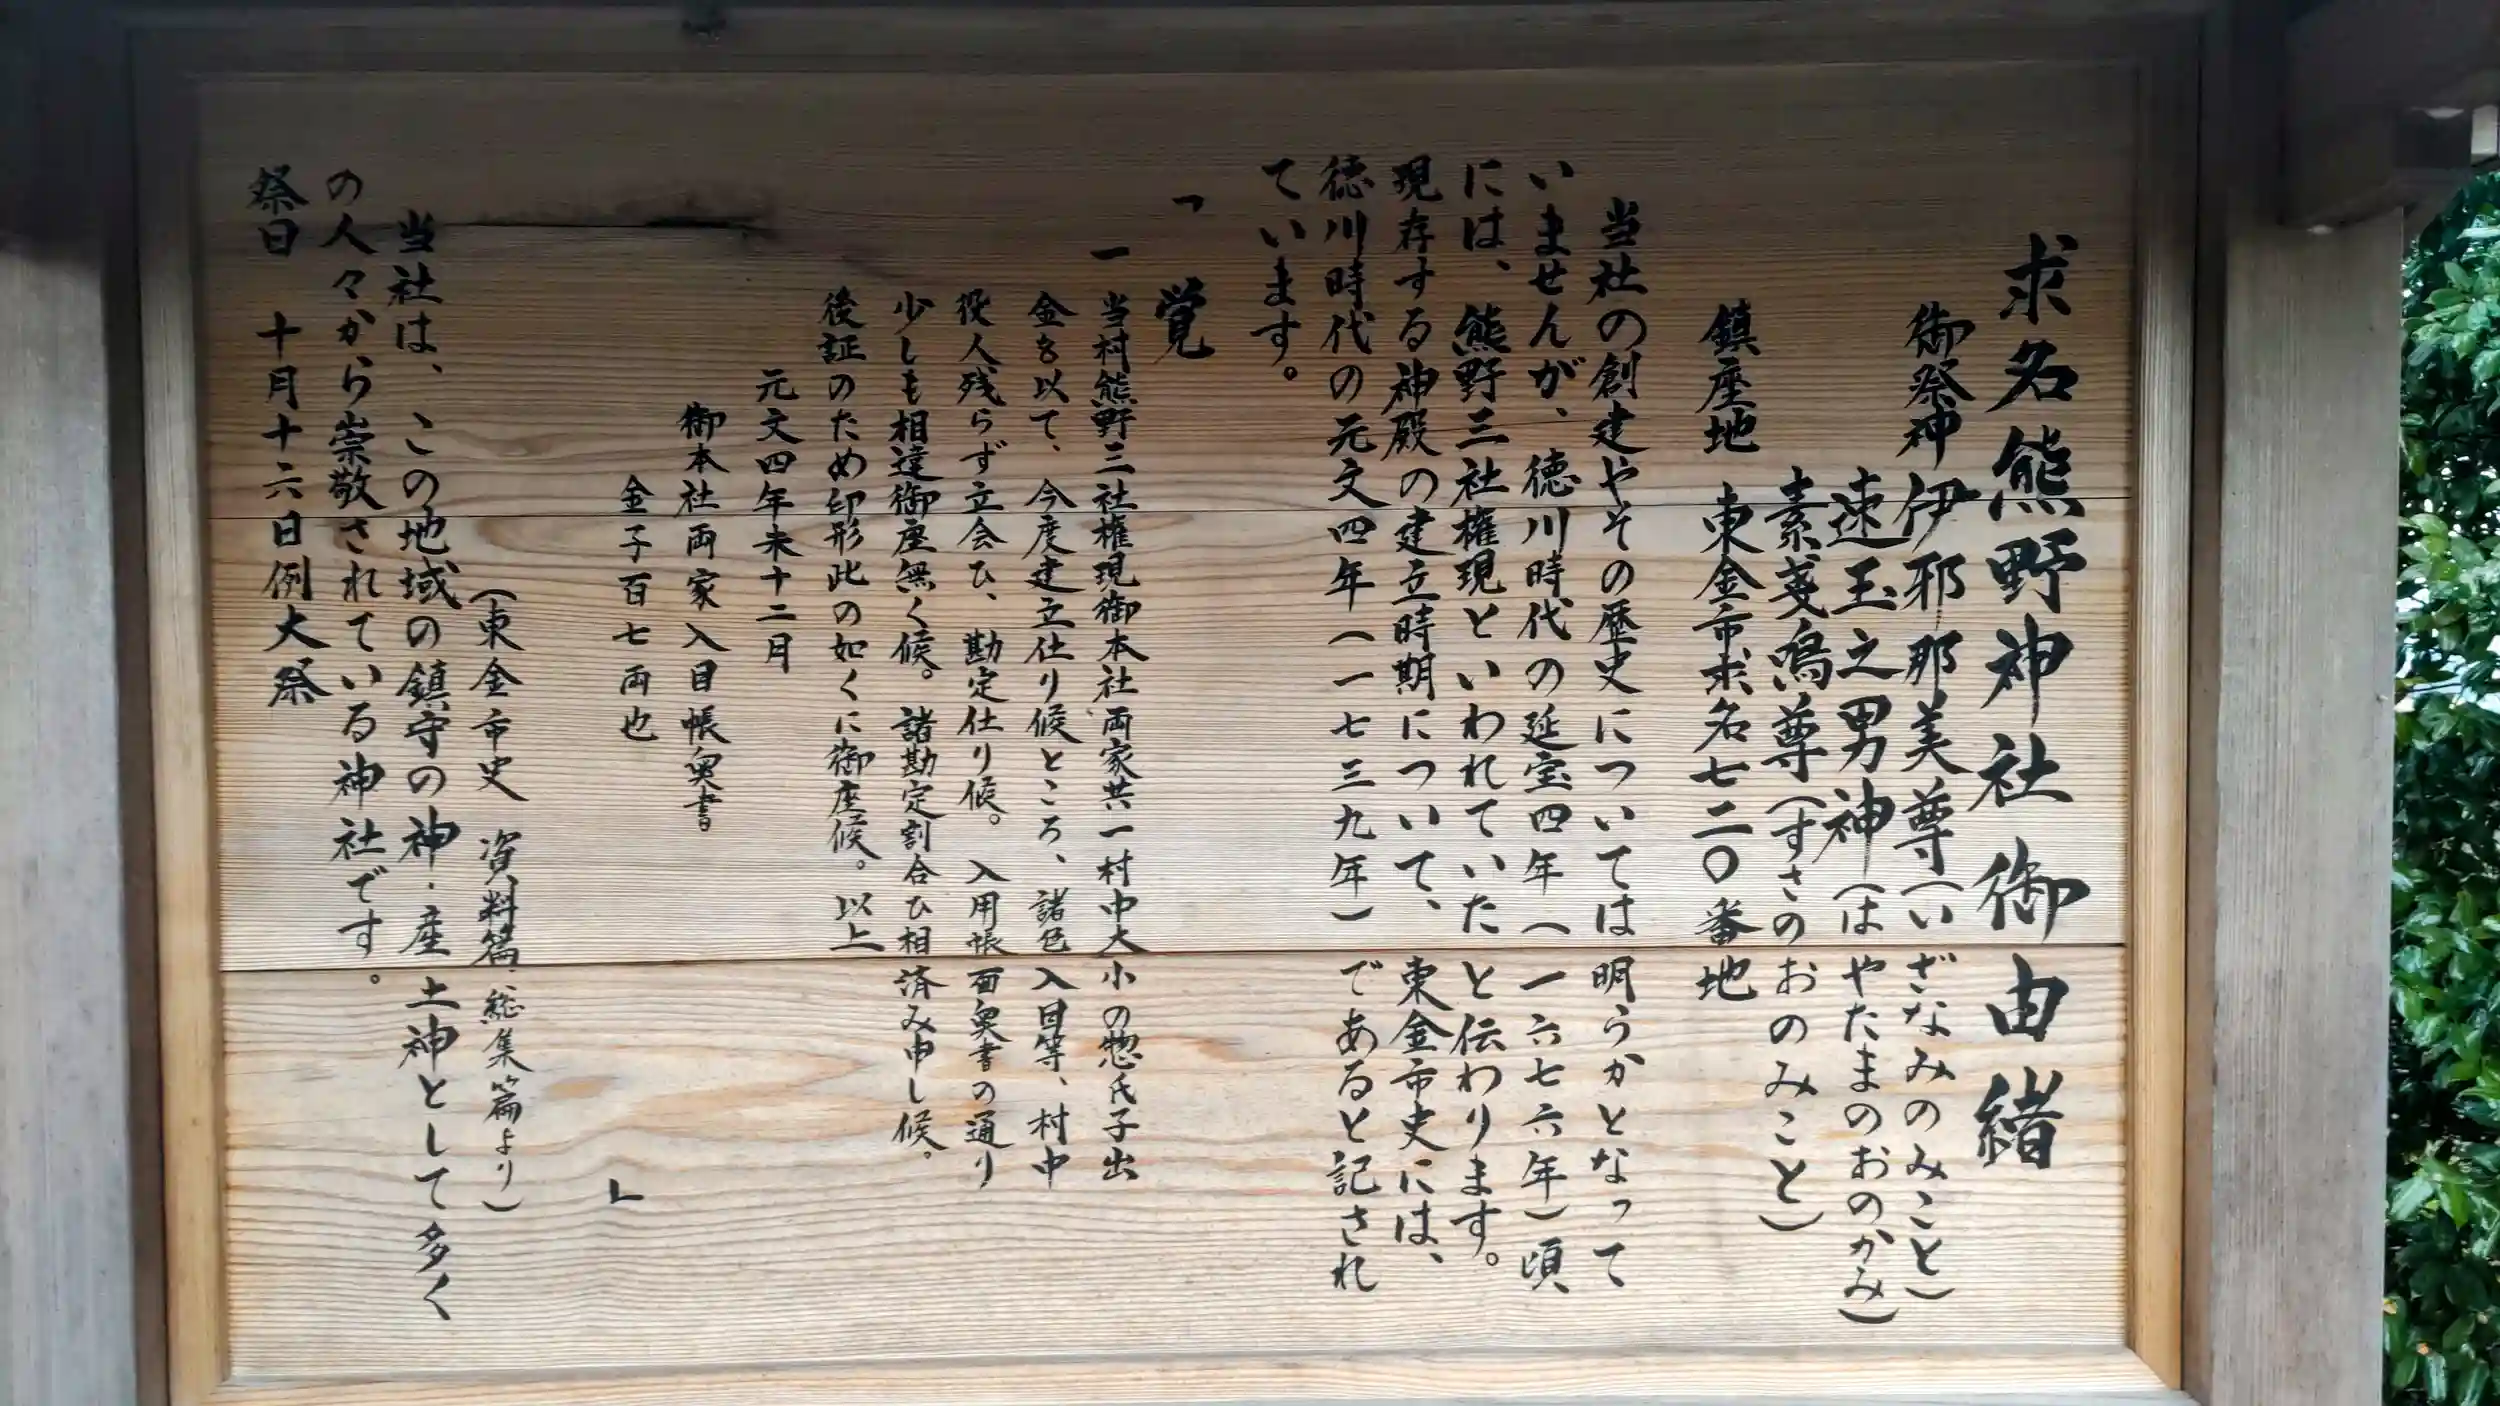 求名熊野神社御由緒
御祭神 伊邪那美尊(いざなみのみこと)
速玉之男神(はやたまのおのかみ)
素戔嗚尊(すさのおのみこと)
鎮座地 東金市求名七二〇番地
当社の創建やその歴史については明らかとなって
いませんが、徳川時代の延宝四年(一六七六年)頃
には、熊野三社権現といわれていたと伝わります。
現存する神殿の建立時期について、東金市史には、
徳川時代の元文四年(一七三九年)であると記され
ています。
「 覚
一 当村熊野三社権現御本社両家共一村中大小の惣氏子出
金を以て、今度建立仕り候ところ、諸色入目等、村中
役人残らず立会ひ、勘定仕り候。入用帳面奥書の通り
少しも相違御座無く候。諸勘定割合ひ相済み申し候。
後証のため印形此の如くに御座候。以上
元文四年未十二月
御本社両家入目帳奥書
金子百七両也 」
(東金市史 資料篇、総集篇より)
当社は、この地域の鎮守の神・産土神として多く
の人々から崇敬されている神社です。
祭日 十月十六日例大祭